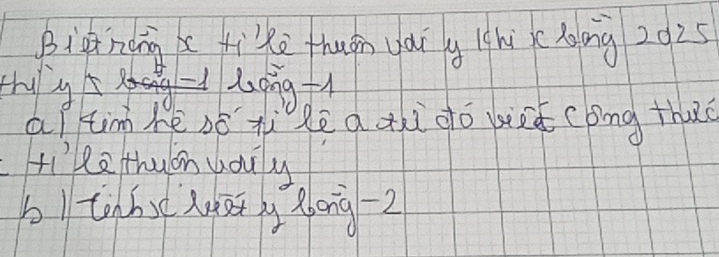 Biết rằng x tỉ lệ thuận với y khi x bằng 2025
thì y bằng -1
a) tìm hệ số tỉ lệ a từ đó viết công thức
tỉ lệ thuận với y
b) tính x biết y bằng -2